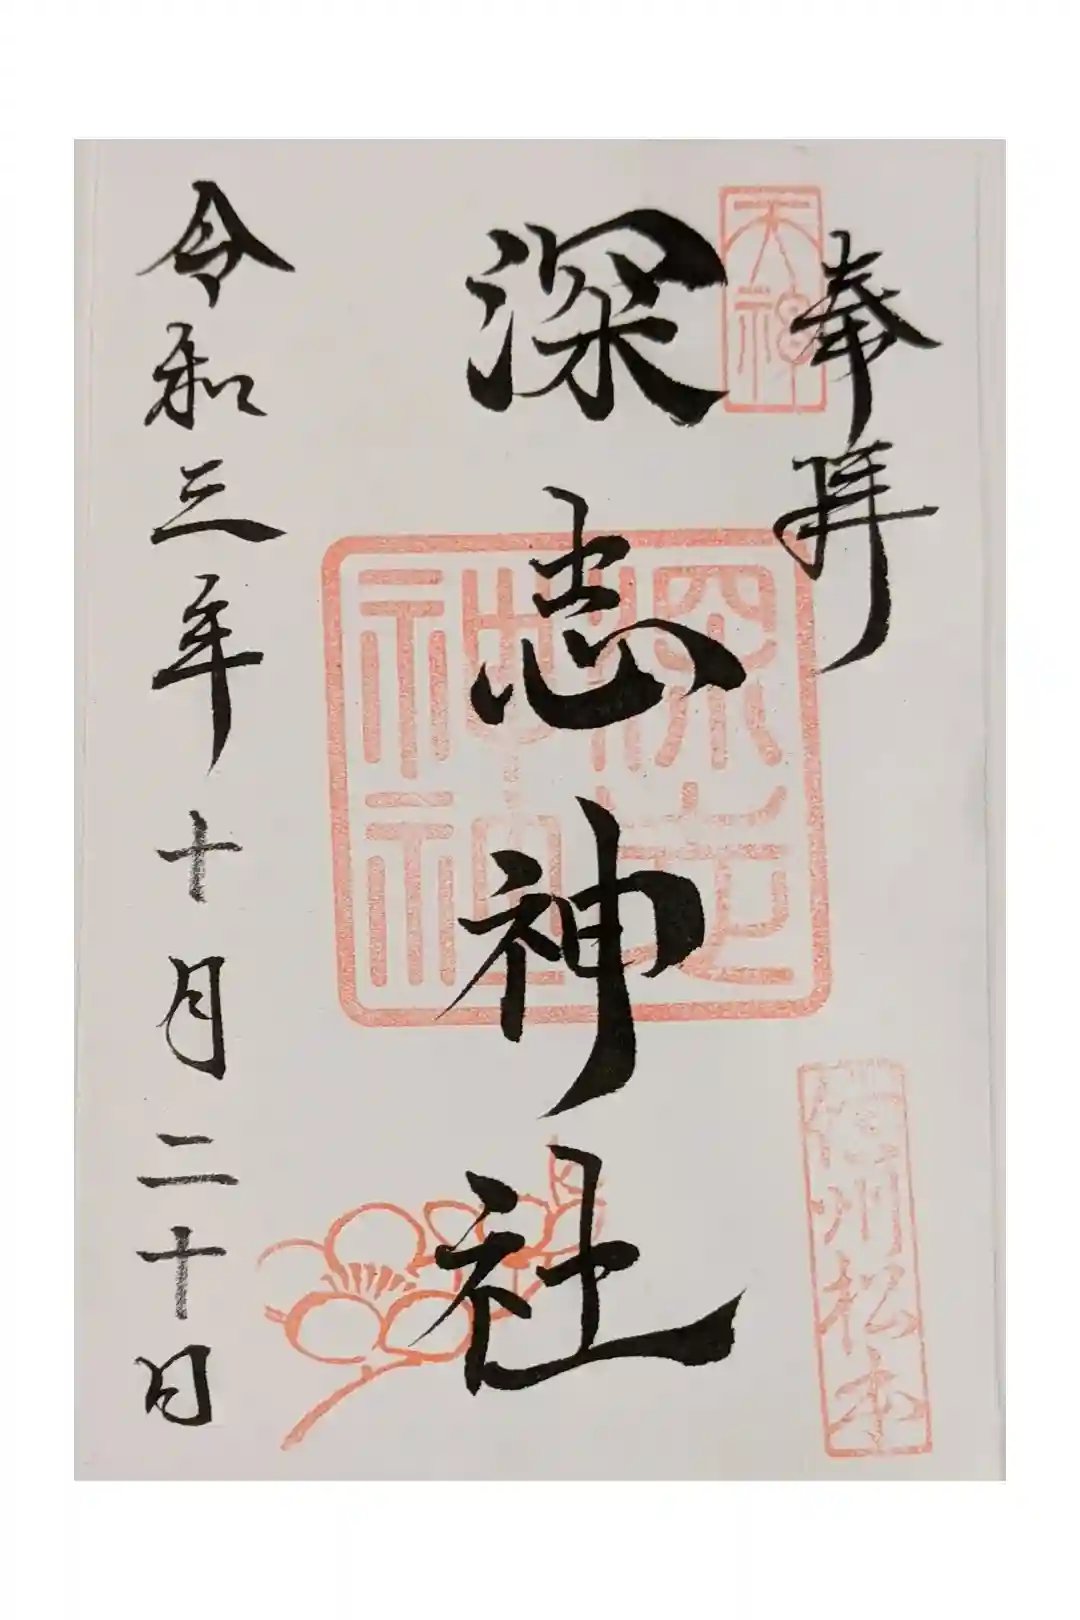 奉拝
天神
深志神社
深志神社
信州松本
令和三年十月二十日